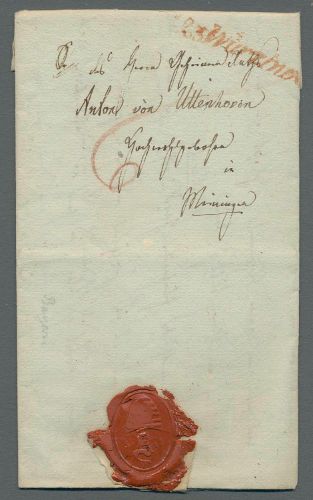 des Herrn Geheimen Raths
Anton von Uttenhoven
Hochwohlgeboren
in
Meiningen
6